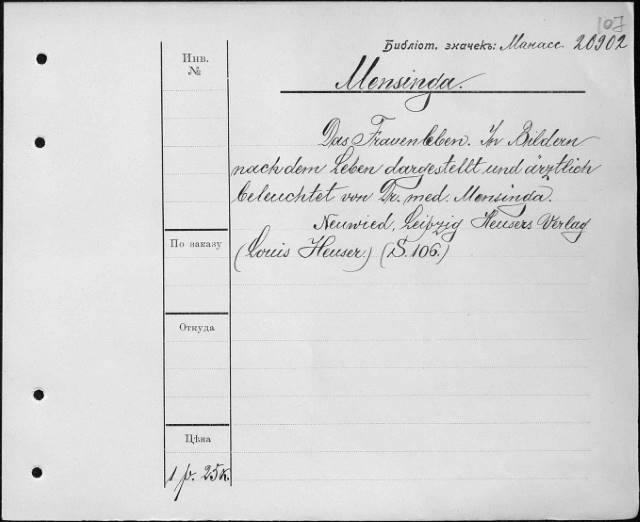 107
Библіот. значекъ: Манасс. 20902
Инв.
№
Mensinga.
Das Frauenleben. In Bildern
nach dem Leben dargestellt und ärztlich
beleuchtet von Dr. med. Mensinga.
Neuwied, Leibzig Heusers Verlag
(Louis Heuser.) (S. 106.)
По заказу
Откуда
Цѣна
1 р. 25 к.